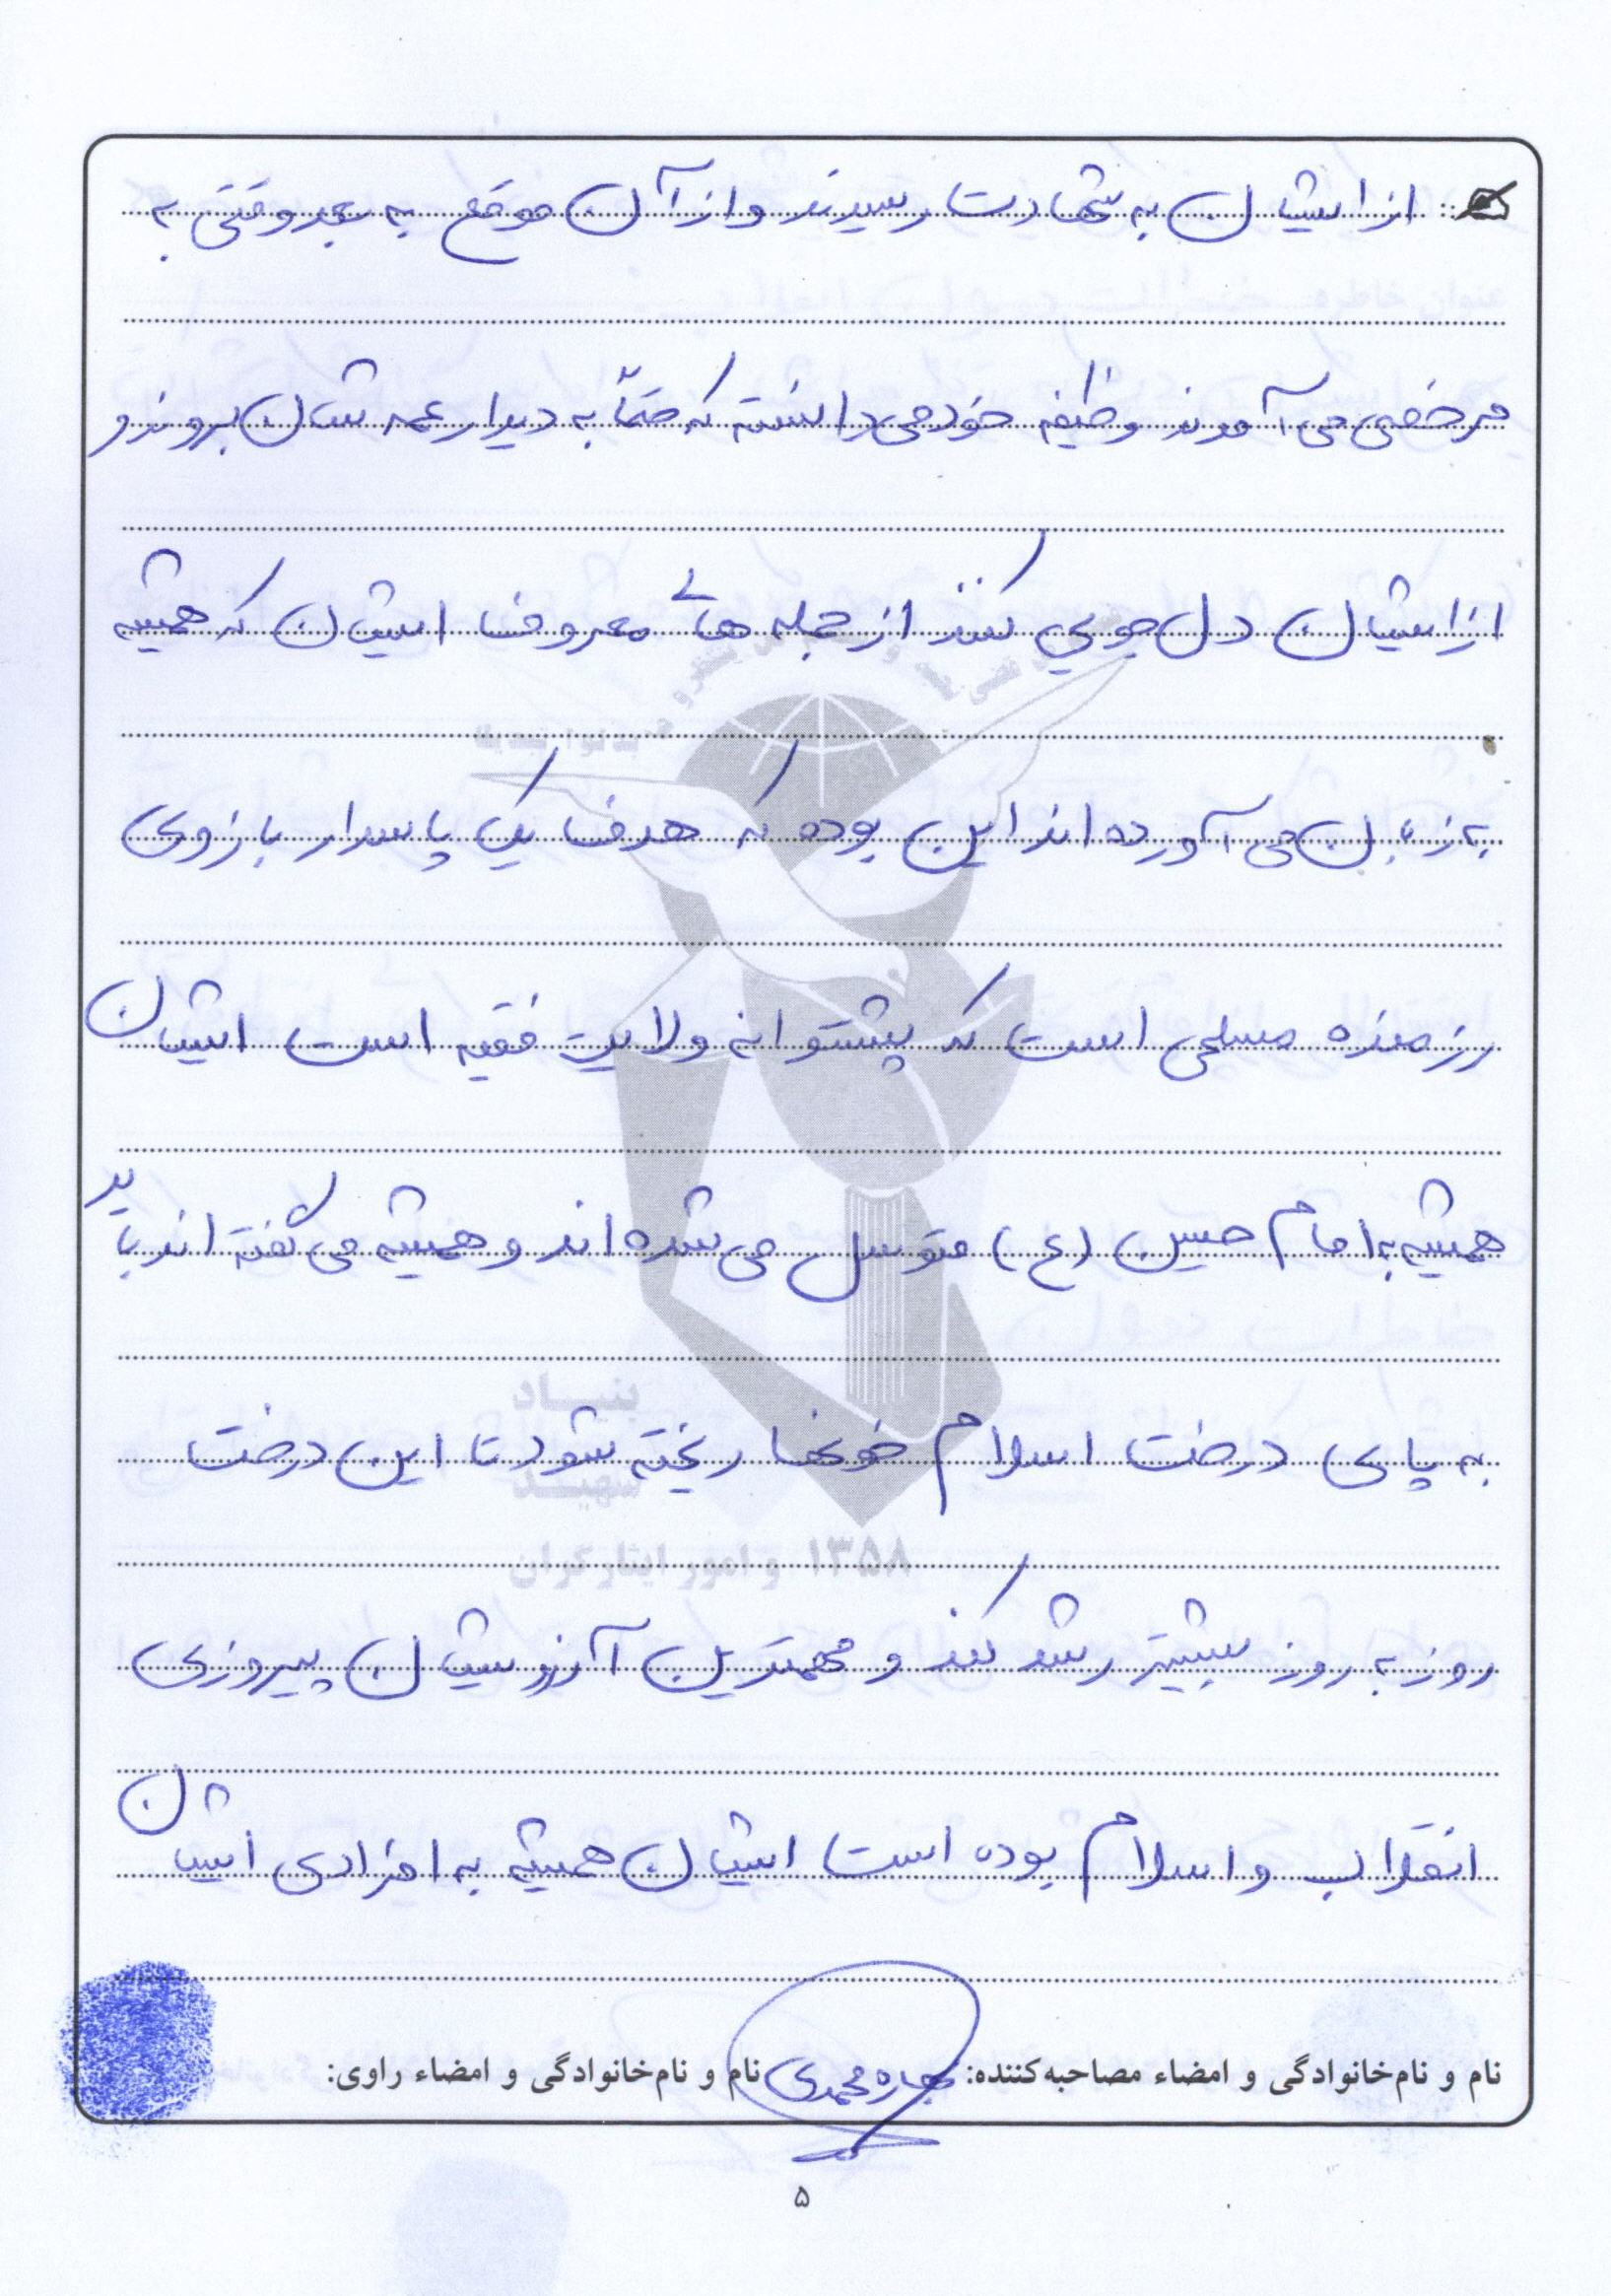 از ایشان به شهادت رسیدند و از آن موقع به بعد وقتی به
مرخصی می آمدند وظیفه خود می دانسته که حتماً به دیدار عمه شان بروند و
از ایشان دل جویی کنند از جمله های معروف ایشان که همیشه
به زبان می آورده اند این بوده که هدف یک پاسدار بازوی
رزمنده مسلمی است که پشتوانه ولایت فقیه است ایشان
همیشه به امام حسین (ع) متوسل می شده اند و همیشه می گفته اند باید
به پای درخت اسلام خونها ریخته شود تا این درخت
روز به روز بیشتر رشد کند و مهمترین آرزوشان پیروزی
انقلاب و اسلام بوده است ایشان همیشه به افرادی ایشان
نام و نام‌خانوادگی و امضاء مصاحبه‌کننده: محمدی نام و نام‌خانوادگی و امضاء راوی:
۵
بنیاد
شهید
و امور ایثارگران ۱۳۵۸